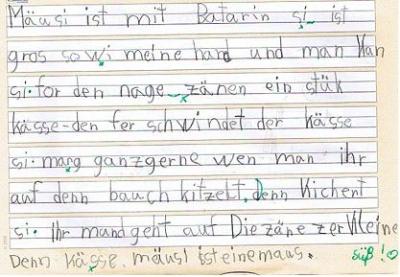 Mäusi ist mit Batarin si ist
gros so wi meine hand und man kan
si for den nage zänen ein stük
kässe-den fer schwindet der kässe
si marg ganzgerne wen man ihr
auf denn bauch kitzelt. Denn kichent
si. Ihr mund geht auf Die zäne zerkleine
Denn kässe. mäusi ist eine maus. süß!